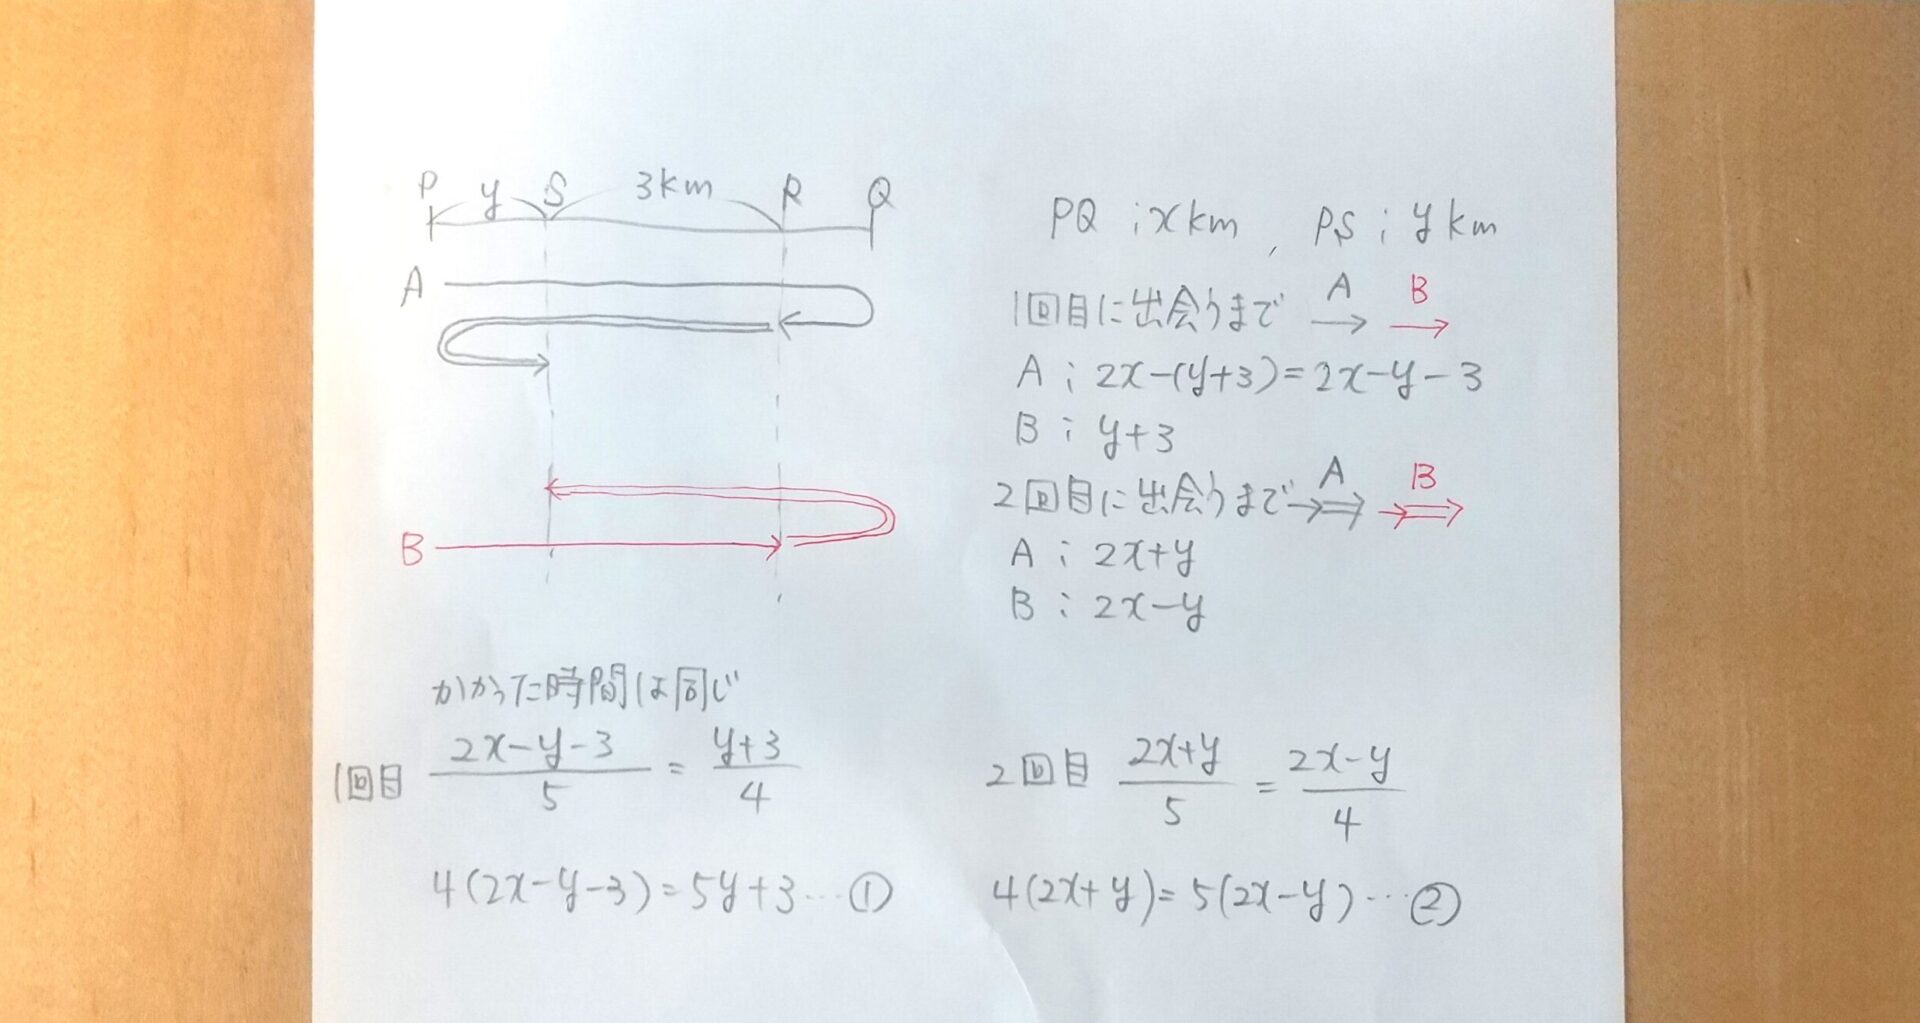 P y S 3km R Q
A
B
PQ ; x km , PS ; y km
1回目に出会うまで A → B →
A ; 2x-(y+3)=2x-y-3
B ; y+3
2回目に出会うまで A →⇒ B →⇒
A ; 2x+y
B ; 2x-y
かかった時間は同じ
1回目 (2x-y-3)/5 = (y+3)/4
4(2x-y-3)=5y+3…①
2回目 (2x+y)/5 = (2x-y)/4
4(2x+y)=5(2x-y)…②